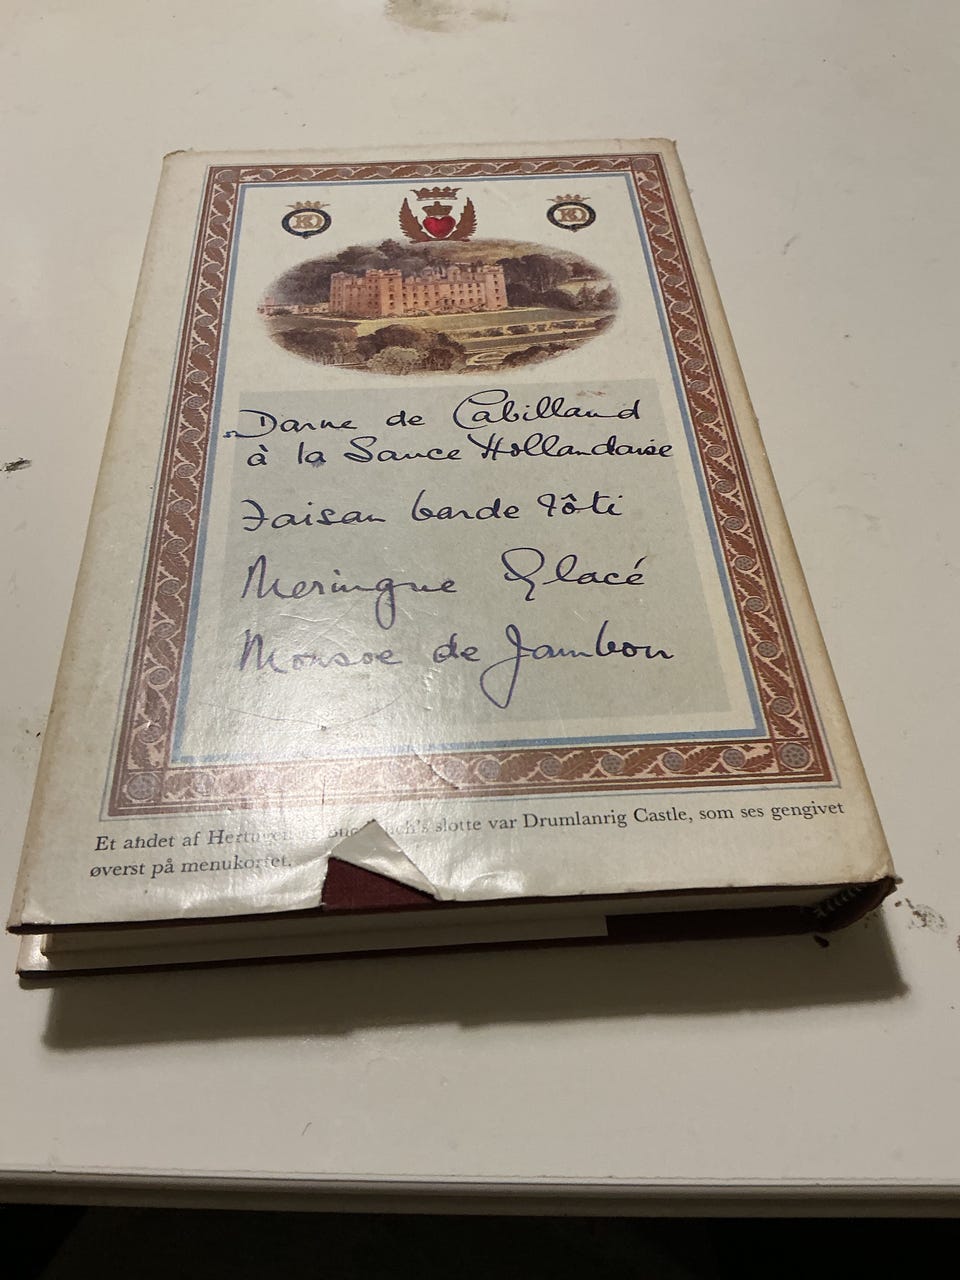 Darne de Cabillaud
à la Sauce Hollandaise
Faisan barde rôti
Meringue Glacé
de Jambon
Et andet af slotte var Drumlanrig Castle, som ses gengivet
øverst på menukortet.